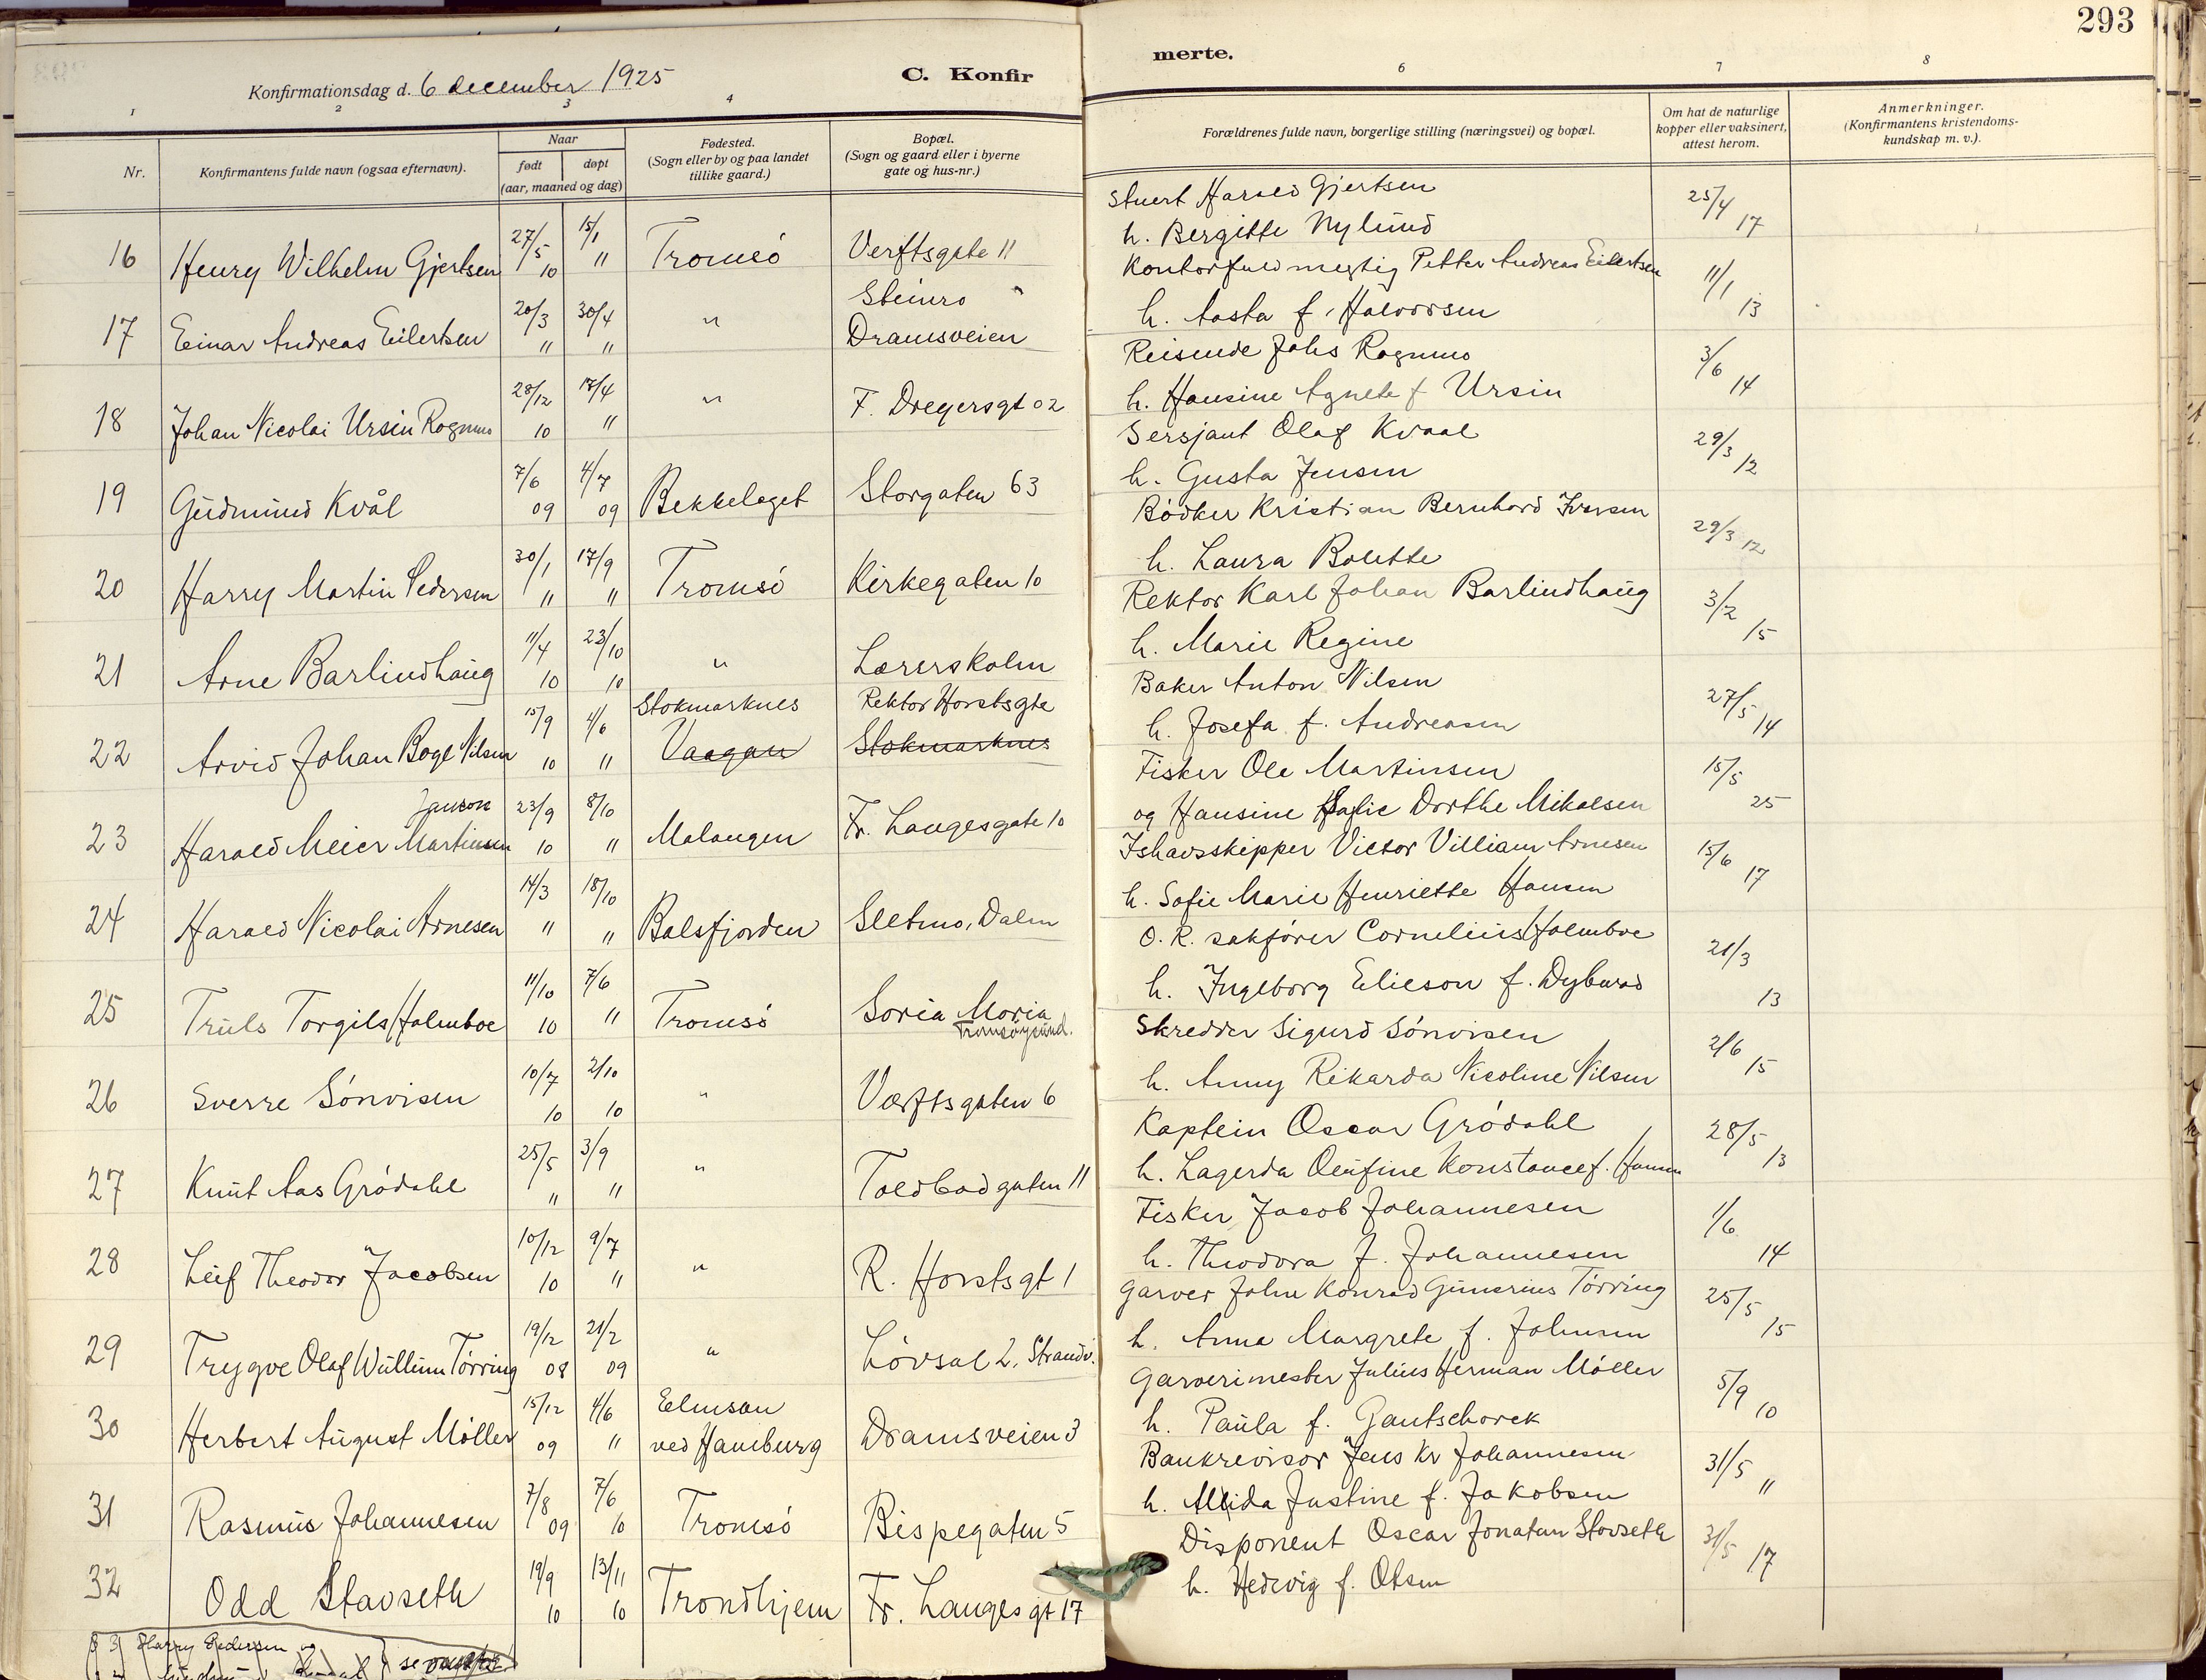 293
C. Konfir merte.
Konfirmationsdag d. 6 december 1925
1 2 3 4 6 7 8
Nr.
Konfirmantens fulde navn (ogsaa efternavn).
Naar
født døpt
(aar, maaned og dag)
Fødested.
(Sogn eller by og paa landet
tillike gaard.)
Bopæl.
(Sogn og gaard eller i byerne
gate og hus-nr.)
Forældrenes fulde navn, borgerlige stilling (næringsvei) og bopæl.
Om hat de naturlige
kopper eller vaksinert,
attest herom.
Anmerkninger.
(Konfirmantens kristendoms-
kundskap m. v.).
16 Henry Wilhelm Gjertsen 27/5 10 15/1 " Tromsö Verftsgate 11
Stuert Harald Gjertsen 25/4 17
h. Bergitte Nylund
17 Einar Andreas Eilertsen 20/3 " 30/4 " " Steinro Dramsveien
Kontorfuldmegtig Petter Andreas Eilertsen 11/1 13
h. Aasta f. Halvorsen
18 Johan Nicolai Ursin Rognmo 28/12 10 17/4 " " F. Dreyersgt 02
Reisende Johs Rognmo 3/6 14
h. Hansine Agnete f Ursin
19 Gudmund Kvål 7/6 09 4/7 09 Bekkelaget Storgaten 63
Sersjant Olaf Kvaal 29/3 12
h. Gusta Jensen
20 Harry Martin Pedersen 30/1 " 17/9 " Tromsö Kirkegaten 10
Bödker Kristian Bernhard Iversen 29/3 12
h. Laura Bolette
21 Arne Barlindhaug 11/4 10 23/10 10 " Lærerskolen
Rektor Karl Johan Barlindhaug 3/2 15
h. Marie Regine
22 Arvid Johan Boge Nilsen 15/9 10 4/6 " Stokmarknes Vaagan Rektor Horstsgte Stokmarknes
Baker Anton Nilsen 27/5 14
h. Josefa f. Andreasen
23 Harald Meier Martinsen 23/9 10 8/10 " Malangen Fr. Langesgate 10
Fisker Ole Martinsen 15/5 25
og Hansine Dorthe Mikalsen
24 Harald Nicolai Arnesen 14/3 " 18/10 " Balsfjorden Sletmo, Dalen
Ishavsskipper Victor Villiam Arnesen 15/6 17
h. Sofie Marie Henriette Hansen
25 Truls Torgils Holmboe 11/10 10 7/6 " Tromsö Soria Moria
Tromsöysund.
O. R. sakfører Cornelius Holmboe 21/3 13
h. Ingeborg Elieson f. Dybwad
26 Sverre Sönvisen 10/7 10 2/10 10 " Værftsgaten 6
Skredder Sigurd Sönvisen 2/6 15
h. Anny Rikarda Nicoline Nilsen
27 Knut Aas Grödahl 25/5 " 3/9 " " Toldbodgaten 11
Kaptein Oscar Grödahl 28/5 13
h. Lagerda Olufine Konstance f. Hansen
28 Leif Theodor Jacobsen 10/12 10 9/7 " " R. Horstsgt 1
Fisker Jacob Johannesen 1/6 14
h. Theodora f. Johannesen
29 Trygve Olaf Wullum Törring 19/12 08 21/2 09 " Lövsal 2, Strandv.
Garver John Konrad Gunerius Törring 25/5 15
h. Anna Margrete f. Johnsen
30 Herbert August Möller 15/12 09 4/6 " ved Hamburg Dramsveien 3
Garverimester Julius Herman Möller 5/9 10
h. Paula f. Gantschorek
31 Rasmus Johannesen 7/8 09 7/6 10 Tromsö Bispegaten 5
Bankrevisor Jens Kr Johannesen 31/5 "
h. Alida Justine f. Jakobsen
32 Odd Stavseth 19/9 10 13/11 10 Trondhjem Fr. Langesgt 17
Disponent Oscar Jonatan Stavseth 31/5 17
h. Hedvig f. Olsen
Harry Pedersen og